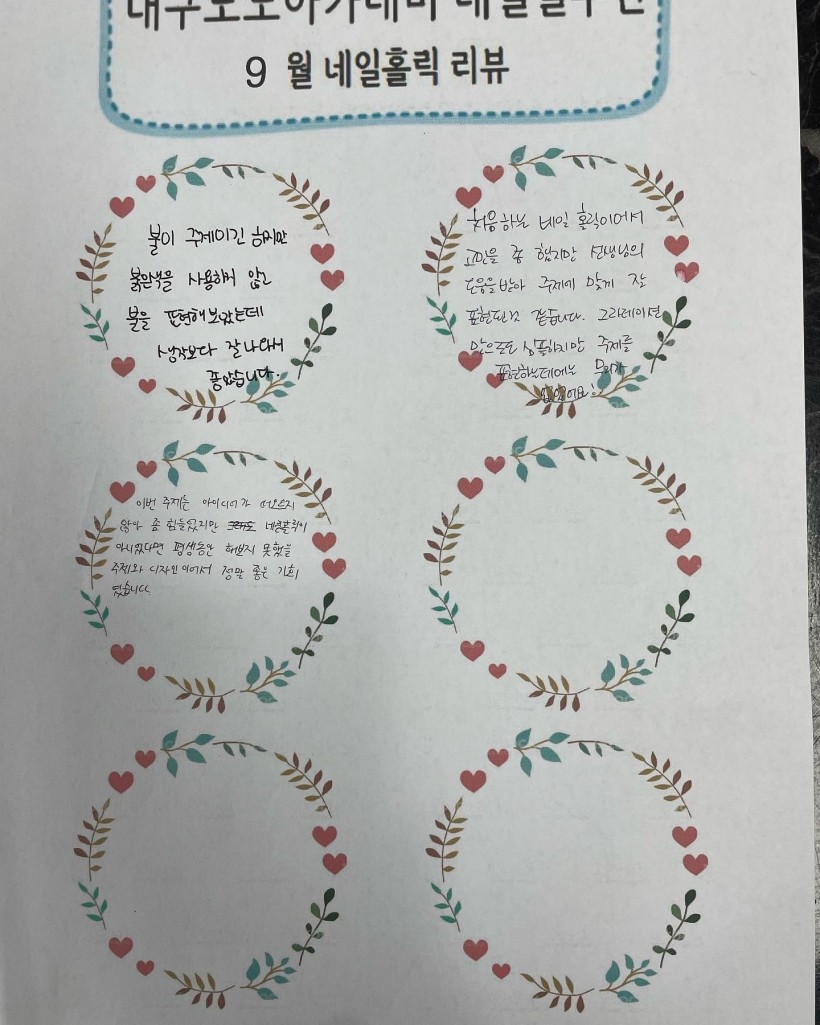 9 월 네일홀릭 리뷰
불이 주제이긴 하지만
붉은색을 사용하지 않고
불을 표현해보았는데
생각보다 잘 나와서
좋았습니다.
처음하는 네일 홀릭이어서
고민을 좀 했지만 선생님의
도움을 받아 주제에 맞게 잘
표현된 것 같습니다. 그라데이션
만으로도 심플하지만 주제를
표현하는데에는 무리가
없었어요!
이번 주제는 아이디어가 떠오르지
않아 좀 힘들었지만 네일홀릭이
아니었다면 평생동안 해보지 못했을
주제와 디자인이어서 정말 좋은 기회
였습니다.